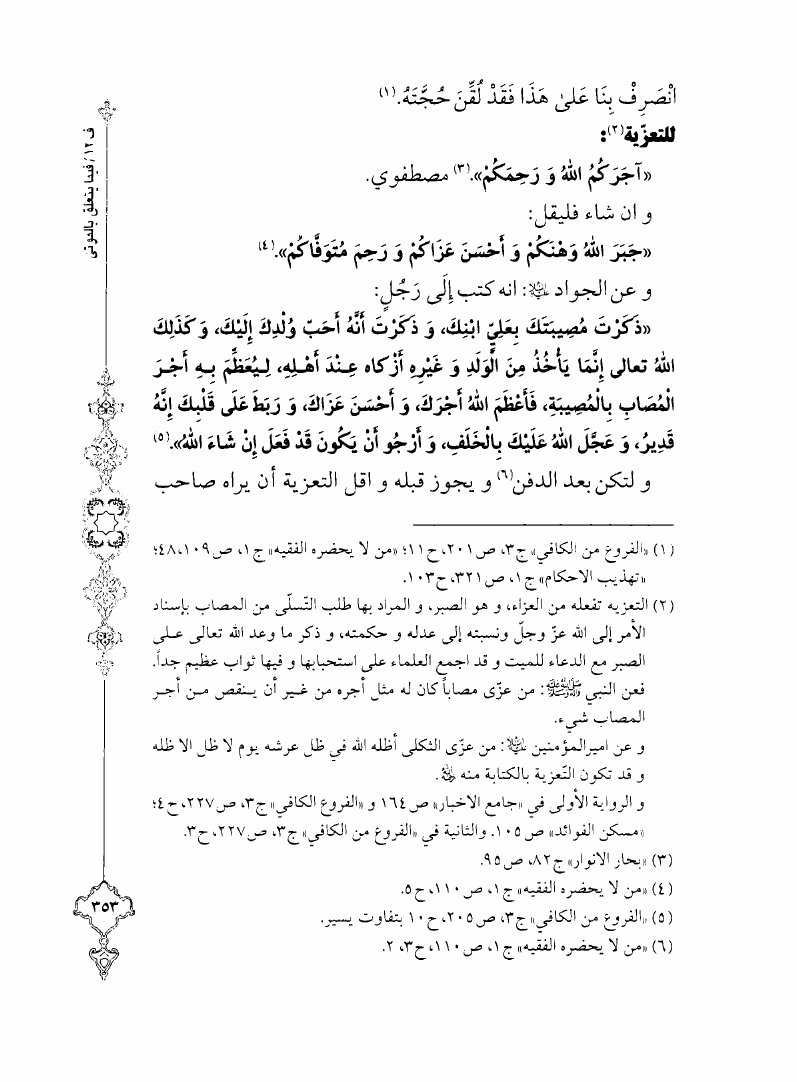 انْصَرِفْ بِنَا عَلىٰ هَذَا فَقَدْ لُقِّنَ حُجَّتَهُ.(١)
للتعزّية(٢):
«آجَرَكُمُ اللهُ وَ رَحِمَكُمْ».(٣) مصطفوي.
و ان شاء فليقل:
«جَبَرَ اللهُ وَهْنَكُمْ وَ أَحْسَنَ عَزَاكُمْ وَ رَحِمَ مُتَوَفَّاكُمْ».(٤)
و عن الجواد ﷷ: انه كتب إِلَى رَجُلٍ:
«ذَكَرْتَ مُصِيبَتَكَ بِعَلِيٍّ ابْنِكَ، وَ ذَكَرْتَ أَنَّهُ أَحَبّ وُلْدِكَ إِلَيْكَ، وَ كَذَلِكَ
اللهُ تعالى إِنَّمَا يَأْخُذُ مِنَ الْوَلَدِ وَ غَيْرِهِ أَزْكاه عِنْدَ أَهْلِهِ، لِيُعَظِّمَ بِهِ أَجْرَ
الْمُصَابِ بِالْمُصِيبَةِ، فَأَعْظَمَ اللهُ أَجْرَكَ، وَ أَحْسَنَ عَزَاكَ، وَ رَبَطَ عَلَى قَلْبِكَ إِنَّهُ
قَدِيرٌ، وَ عَجَّلَ اللهُ عَلَيْكَ بِالْخَلَفِ، وَ أَرْجُو أَنْ يَكُونَ قَدْ فَعَلَ إِنْ شَاءَ اللهُ».(٥)
و لتكن بعد الدفن(٦) و يجوز قبله و اقل التعزية أن يراه صاحب
(١) «الفروع من الكافي» ج٣، ص٢٠١، ح١١؛ «من لا يحضره الفقيه» ج١، ص١٠٩، ٤٨؛
«تهذيب الاحكام» ج١، ص٣٢١، ح١٠٣.
(٢) التعزيه تفعله من العزاء، و هو الصبر، و المراد بها طلب التّسلّى من المصاب بإسناد
الأمر إلى الله عزّ وجلّ ونسبته إلى عدله و حكمته، و ذكر ما وعد الله تعالى على
الصبر مع الدعاء للميت و قد اجمع العلماء على استحبابها و فيها ثواب عظيم جداً.
فعن النبي ﷺ: من عزّى مصاباً كان له مثل أجره من غير أن ينقص من أجر
المصاب شيء.
و عن اميرالمؤمنين ﷷ: من عزّى الثكلى أظله الله في ظل عرشه يوم لا ظل الا ظله
و قد تكون التّعزية بالكتابة منه ﷷ.
و الرواية الأولى في «جامع الاخبار» ص١٦٤ و «الفروع الكافي» ج٣، ص٢٢٧، ح٤؛
«مسكن الفوائد» ص١٠٥. والثانية في «الفروع من الكافي» ج٣، ص٢٢٧، ح٣.
(٣) «بحار الانوار» ج٨٢، ص٩٥.
(٤) «من لا يحضره الفقيه» ج١، ص١١٠، ح٥.
(٥) «الفروع من الكافي» ج٣، ص٢٠٥، ح١٠ بتفاوت يسير.
(٦) «من لا يحضره الفقيه» ج١، ص١١٠، ح٣، ٢.
ف ١٢ / فيما يتعلق بالموتى
٣٥٣